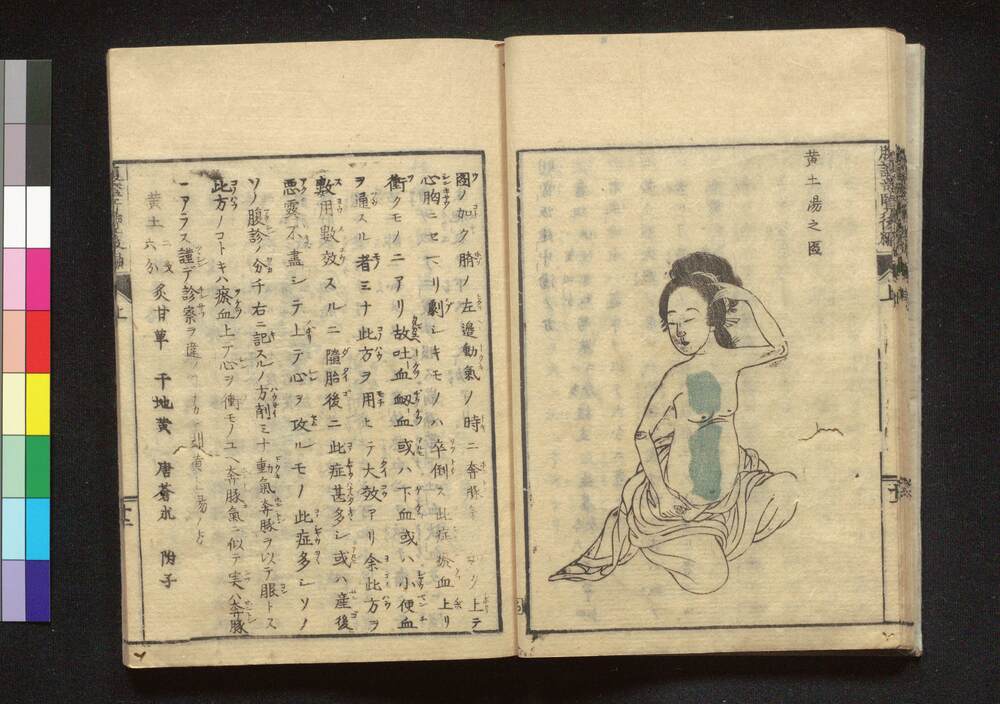 黄土湯之圖
圖ノ如ク臍ノ左邉動氣ノ時ニ奔豚 上テ
心胸ニセマリ劇シキモノハ卒倒ス此症瘀血上リ
衝クモノニアリ故吐血衂血或ハ下血或ハ小便血
ヲ通スル者ミナ此方ヲ用ヒテ大效アリ余此方ヲ
數用數效スルニ墮胎後ニ此症甚多シ或ハ産後
悪露不盡シテ上テ心ヲ攻ルモノ此症多シソノ
ソノ腹診ノ分チ右ニ記スルノ方劑ミナ動氣奔豚ヲ以テ眼トス
此方ノコトキハ瘀血上テ心ヲ衝モノユヘ奔豚氣ニ似テ実ハ奔豚
ニアラス謹デ診察ヲ 湯ノ
黄土 六分 炙甘草 干地黄 唐蒼朮 附子